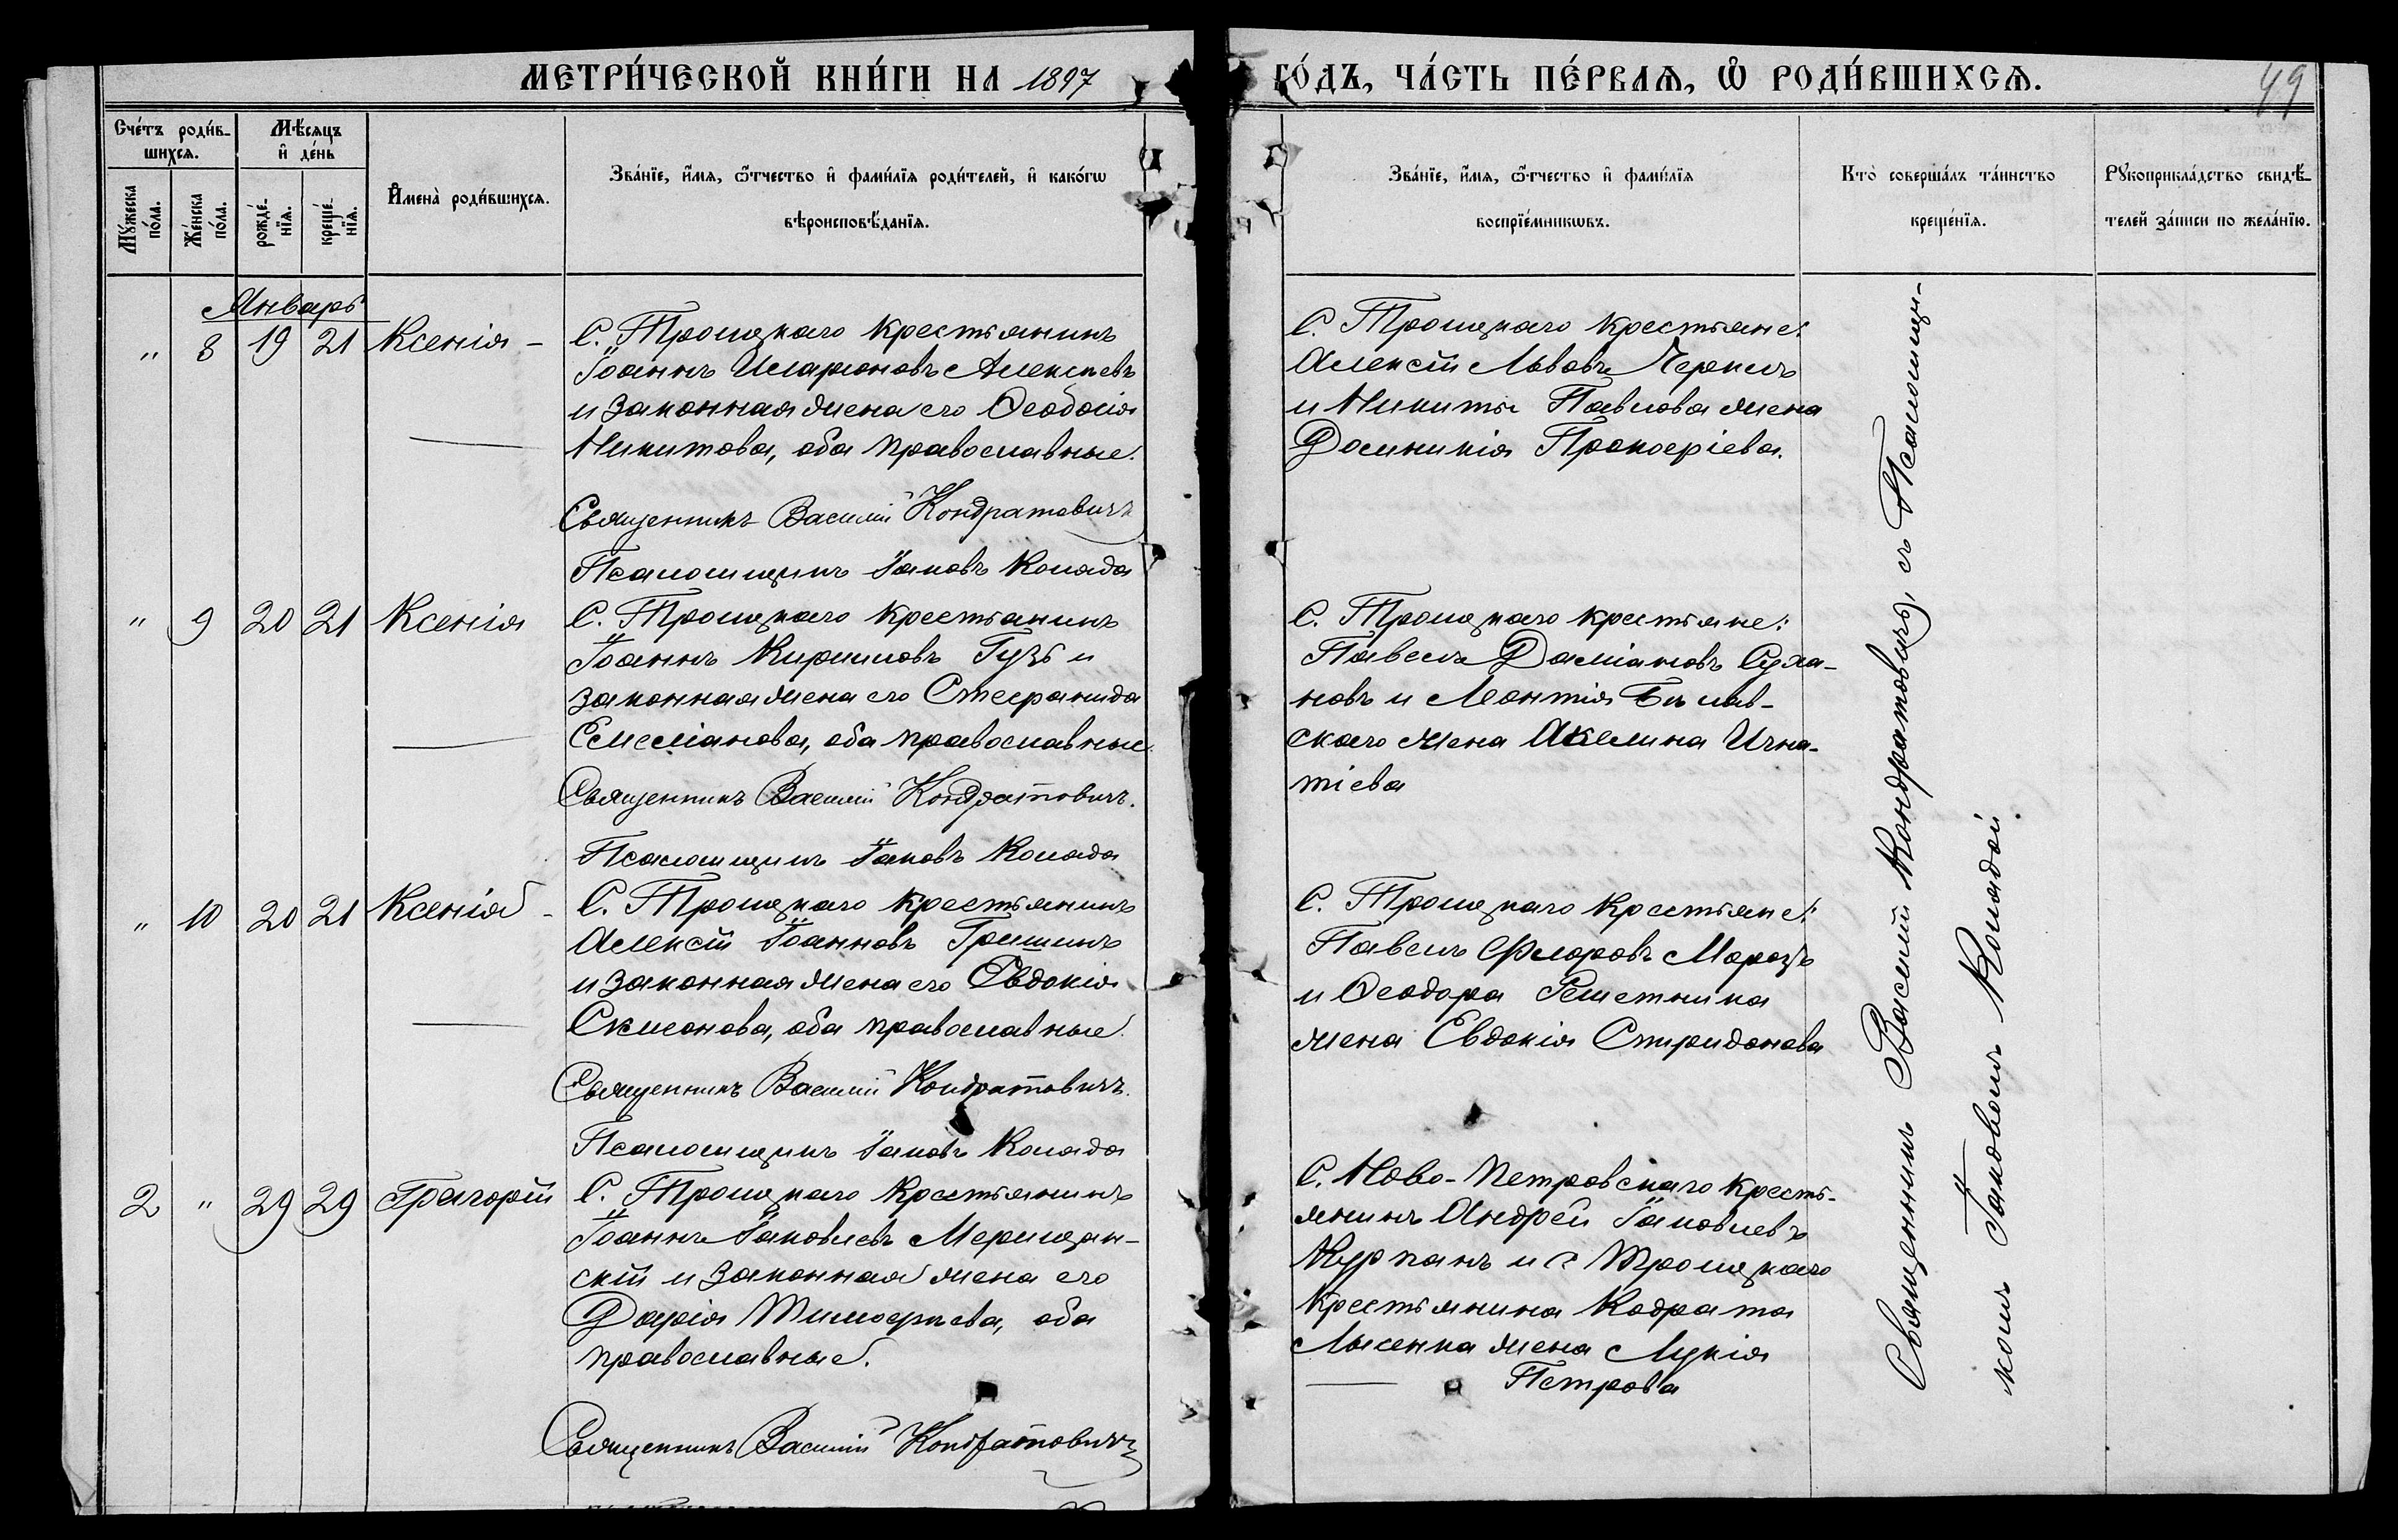 МЕТРИ́ЧЕСКОЙ КНИ́ГИ НА 1897
ГО́ДЪ, ЧА́СТЬ ПЕ́РВАѦ, Ѡ҆ РОДИ́ВШИХСѦ.
49
Сче́тъ роди́в-
шихсѧ.
Мѣ́сѧцъ
и҆ де́нь
Мꙋ́жеска
по́ла.
Же́нска
по́ла.
рожде́-
нїѧ.
креще́-
нїѧ.
И҆мена̀ роди́вшихсѧ.
Зва́нїе, и҆́мѧ, ѻ҆́тчество и҆ фами́лїѧ роди́телей, и҆ како́гѡ
вѣроисповѣ́данїѧ.
Зва́нїе, и҆́мѧ, ѻ҆́тчество и҆ фами́лїѧ
воспрїе́мникѡвъ.
Кто̀ соверша́лъ та́инство
креще́нїѧ.
Рꙋкоприкла́дство свидѣ́-
телей за́писи по жела́нїю.
Январь
" 8 19 21 Ксенія –
С. Троицкаго крестьянинъ
Іоаннъ Иларіоновъ Алексѣевъ
и законная жена его Ѳеодосія
Никитова, оба православные.
Священникъ Василій Кондратовичъ
Псаломщикъ Іаковъ Коляда
С. Троицкаго крестьяне:
Алексій Львовъ
и Никиты Павлова жена
Домникія Прокофіева.
" 9 20 21 Ксенія
С. Троицкаго крестьянинъ
Іоаннъ Кирилловъ Гузь и
законная жена его Стефанида
Емеліанова, оба православные.
Священникъ Василій Кондратовичъ.
Псаломщикъ Іаковъ Коляда
С. Троицкаго крестьяне:
Павелъ Даміановъ Суха-
новъ и Леонтія Билав-
скаго жена Акелина Игна-
тіева
" 10 20 21 Ксенія –
С. Троицкаго крестьянинъ
Алексій Іоанновъ Гришинъ
и законная жена его Евдокія
оба православные.
Священникъ Василій Кондратовичъ.
Псаломщикъ Іаковъ Коляда
С. Троицкаго крестьяне:
Павелъ Флоровъ Морозъ
и Ѳеодора Решетника
жена Евдокія Спиридонова
2 " 29 29 Григорій
С. Троицкаго крестьянинъ
Іоаннъ Іаковлевъ Мерищан-
скій и законная жена его
Дарія Тимоѳѣева, оба
православные.
Священникъ Василій Кондратовичъ
С. Ново-Петровскаго кресть-
янинъ Андрей Іаковлевъ
Курпанъ и с Троицкаго
крестьянина Кодрата
Лысенка жена Лукія
Петрова
Священникъ Василій Кондратовичъ, съ Псаломщи-
комъ Іаковомъ Колядой.